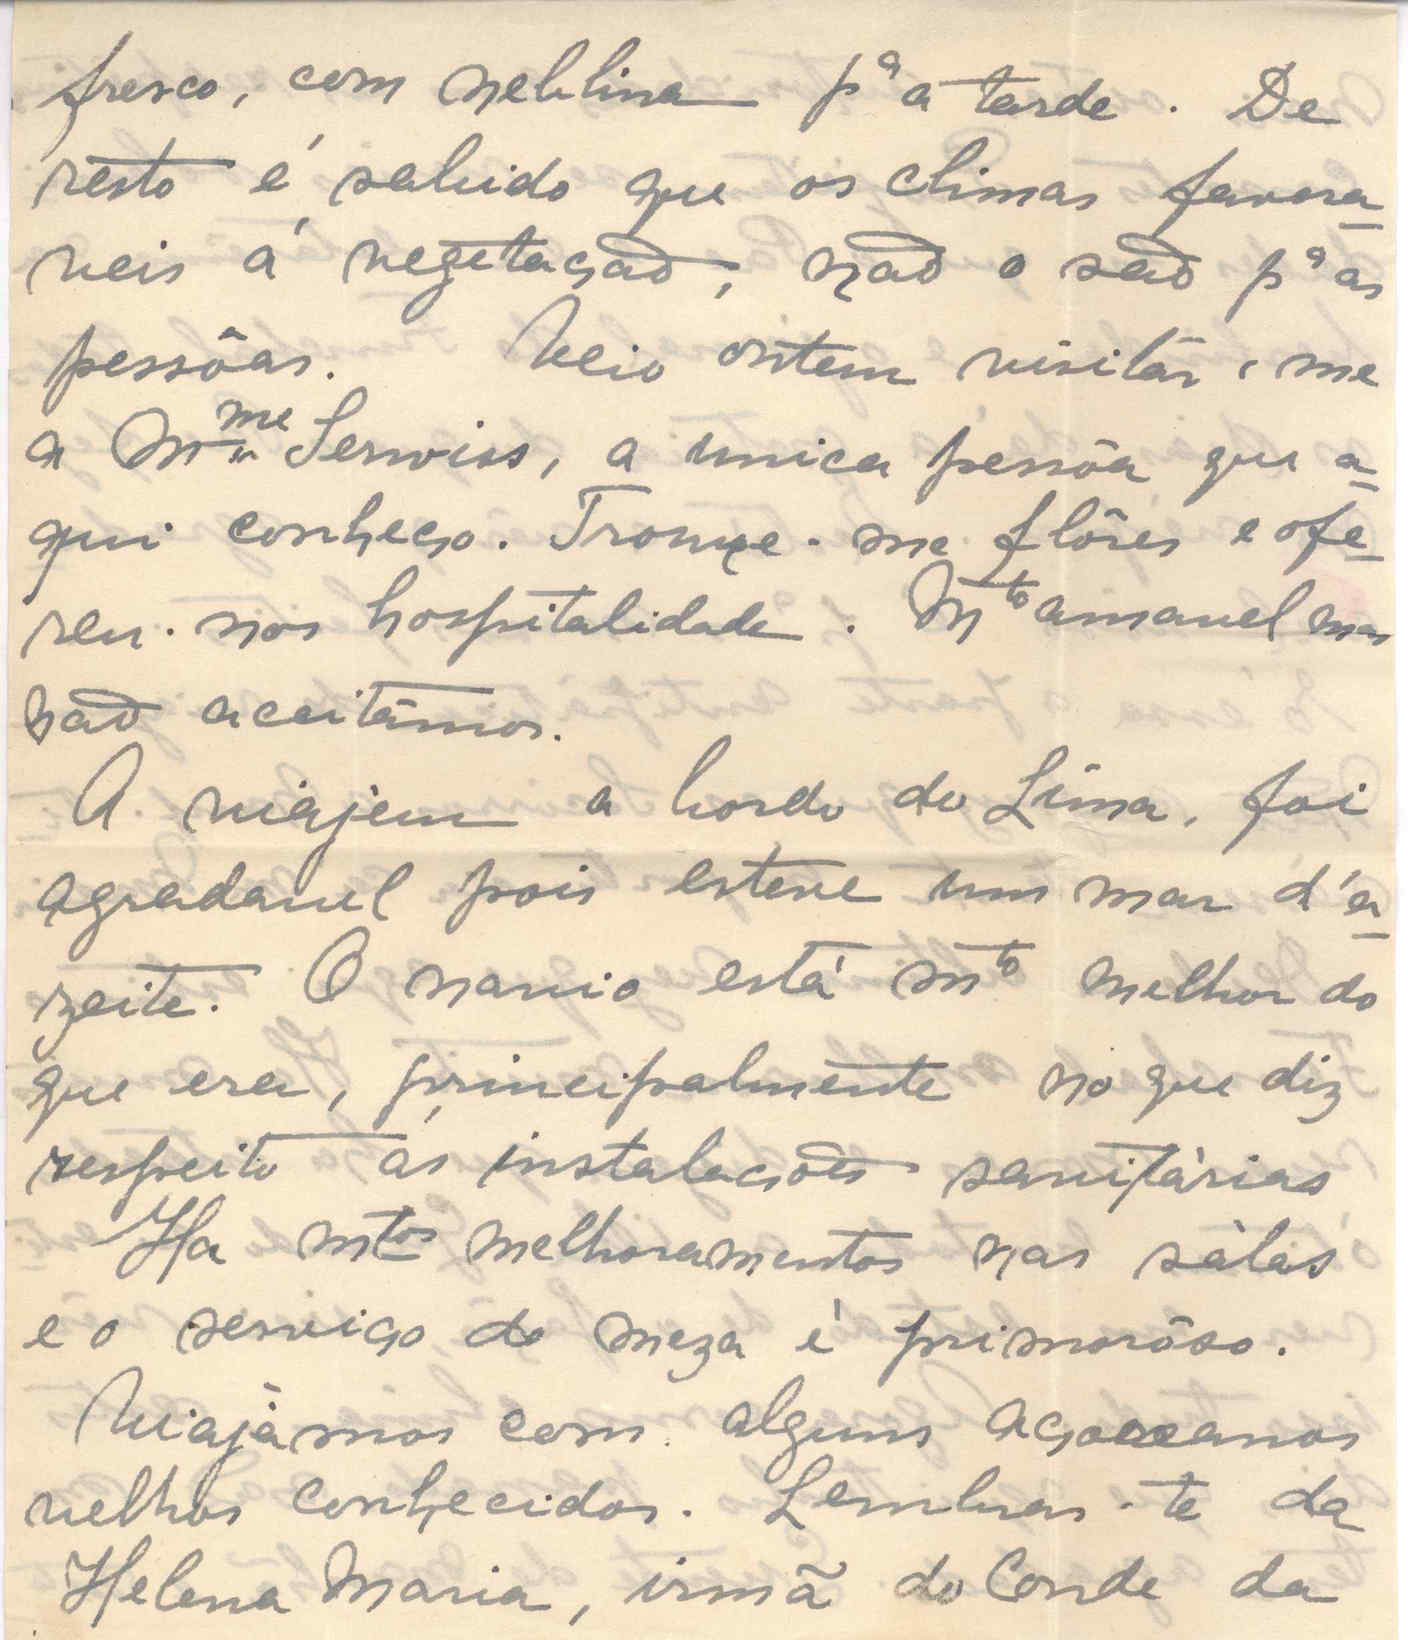 fresco, com neblina pª a tarde. De
resto é sabido que os climas favora-
veis á vegetação, não o são pª as
pessôas. Veio ontem visitár-me
a Mme Serviss, a unica pessôa que a-
qui conheço. Trouxe-me flôres e ofe-
reu-nos hospitalidade. Mto amavel mas
não aceitámos.
A viajem a bordo do Lima, foi
agradavel pois esteve um mar d'a-
zeite. O navio está mto melhor do
que era, principalmente no que diz
respeito ás instalações sanitárias
Ha mtos melhoramentos nas sálas
e o serviço de meza é primorôso.
Viajámos com alguns açoreanos
velhos conhecidos. Lembras-te da
Helena Maria, irmã do Conde da